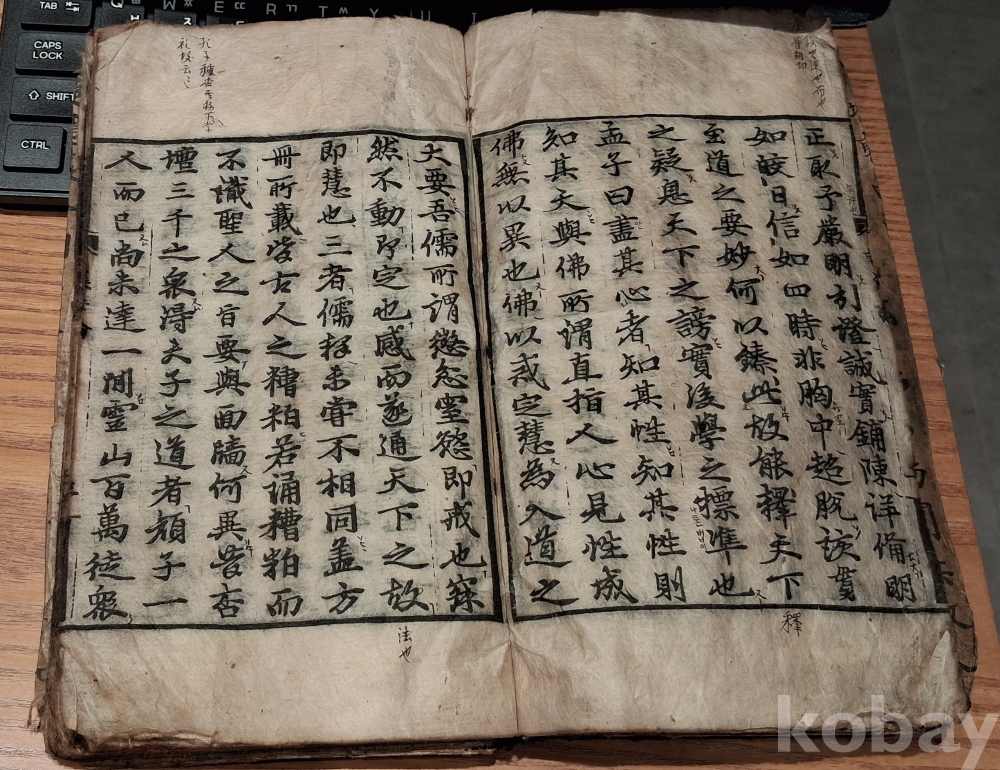 TAB
CAPS LOCK
SHIFT
CTRL
正取予嚴明引證誠實鋪陳詳俻明
如皎日信如四時非胸中超脫該貫
至道之要妙何以臻此故能釋天下
之疑息天下之謗實後學之標準也
孟子曰盡其心者知其性知其性則
知其天與佛所謂直指人心見性成
佛無以異也佛以戒定慧為入道之
大要吾儒所謂懲忿窒慾即戒也寂
然不動即定也感而遂通天下之故
即慧也三者儒釋未甞不相同盖方
冊所載皆古人之糟粕若誦糟粕而
不識聖人之旨要與面牆何異昔杏
壇三千之衆淂夫子之道者顏子一
人而已尚未達一間靈山百萬徒衆
釋
法也
kobay